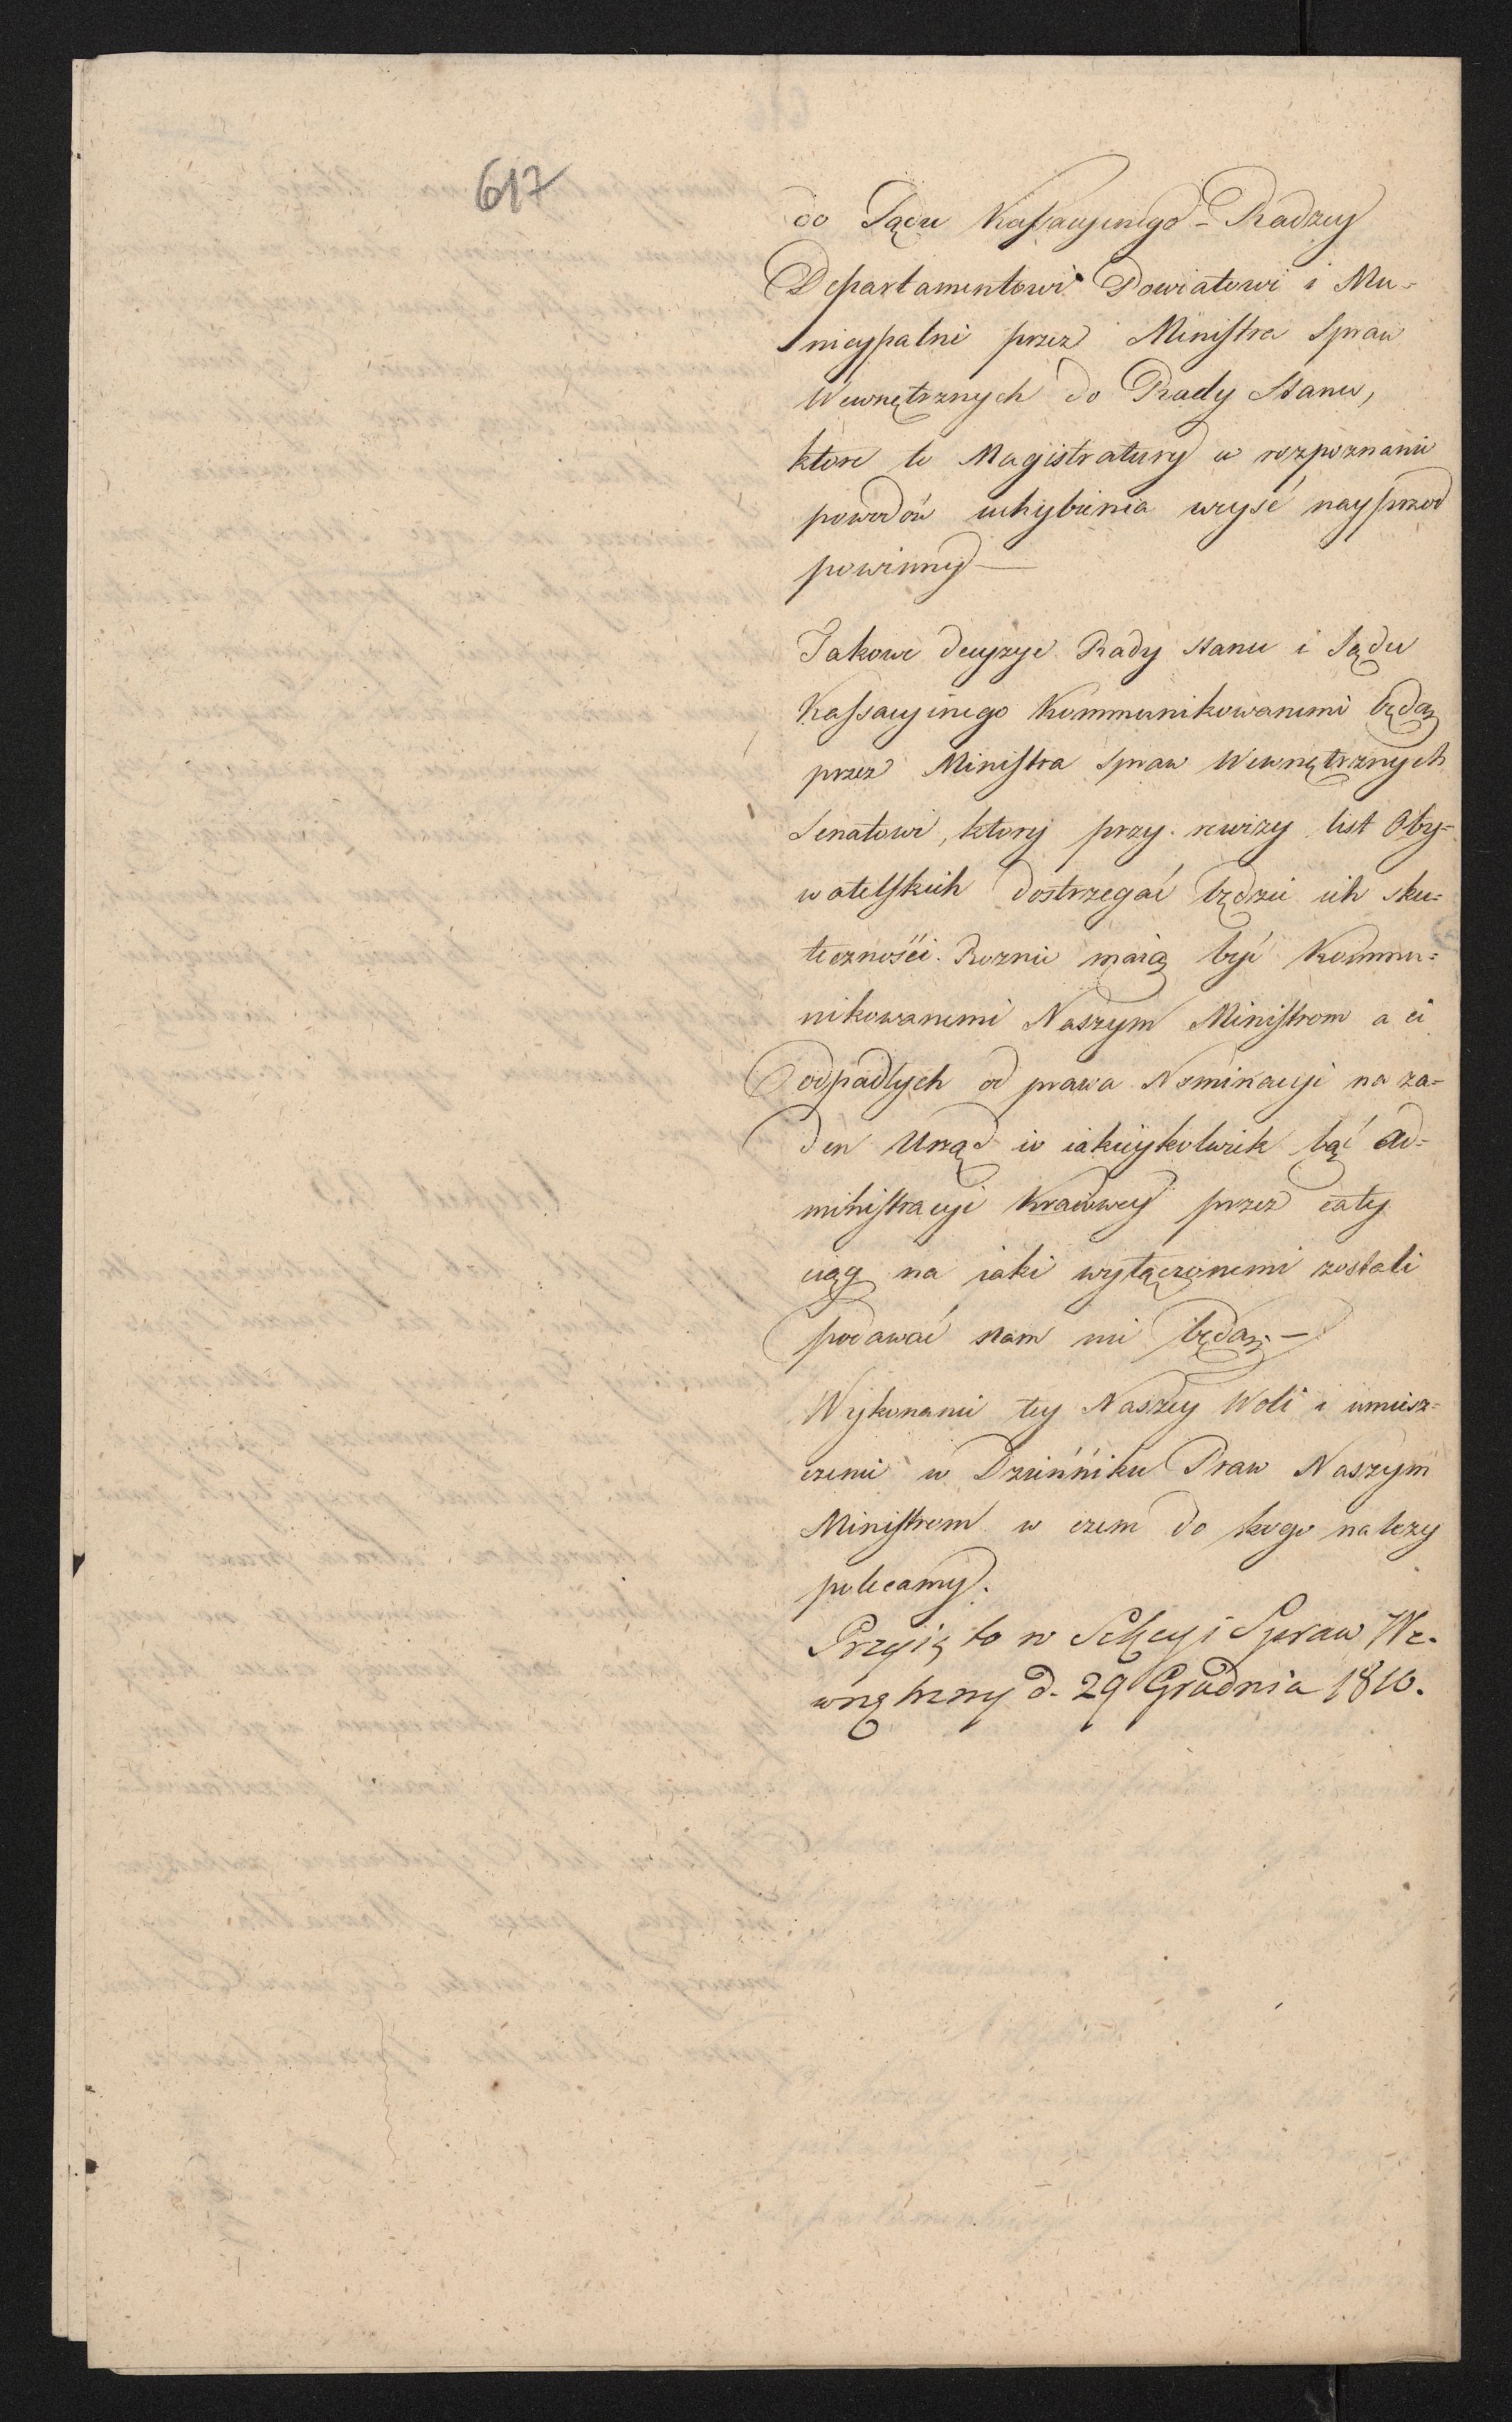 617
do Sądu Kassacyinego - Radzcy
Departamentowi Powiatowi i Mu-
nicypalni przez Ministra Spraw
Wewnętrznych do Rady Stanu,
ktore te Magistratury w rozpoznanie
powodów uchybienia weyść nayprzod
powinny —
Jakowe decyzye Rady Stanu i Sądu
Kassacyinego Kommunikowanemi będą
przez Ministra Spraw Wewnętrznych
Senatowi, ktory przy rewizyi list Oby=
watelskich dostrzegać będzie ich sku=
teczności. Rownie maią być Kommu=
nikowanemi Naszym Ministrom a ci
odpadłych od prawa Nominacyi na ża=
den Urząd w iakieykolwiek bąć Ad=
ministracyi Kraiowey przez cały
ciąg na iaki wyłączonemi zostali
podawać nam nie będą. —
Wykonanie tey Naszey Woli i umiesz=
czenie w Dzienniku Praw Naszym
Ministrom w czem do kogo należy
polecamy.
Przyięto w Sekcyi Spraw We-
wnętrzny d. 29 Grudnia 1810.